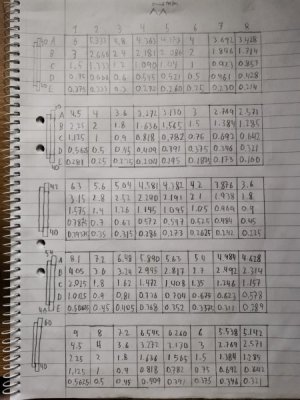 1 2 3 4 5 6 7 8
A 6 5.333 4.8 4.363 4.173 4 3.692 3.428
B 3 2.666 2.4 2.181 2.086 2 1.846 1.714
C 1.5 1.333 1.2 1.090 1.043 1 0.923 0.857
D 0.75 0.666 0.6 0.545 0.521 0.5 0.461 0.428
E 0.375 0.333 0.3 0.272 0.260 0.25 0.230 0.214
40
A 4.5 4 3.6 3.272 3.130 3 2.769 2.571
B 2.25 2 1.8 1.636 1.565 1.5 1.384 1.285
C 1.125 1 0.9 0.818 0.782 0.75 0.692 0.642
D 0.5625 0.5 0.45 0.409 0.391 0.375 0.346 0.321
0.281 0.25 0.225 0.204 0.195 0.1875 0.173 0.160
42
6.3 5.6 5.04 4.581 4.382 4.2 3.876 3.6
3.15 2.8 2.52 2.290 2.191 2.1 1.938 1.8
1.575 1.4 1.26 1.145 1.095 1.05 0.969 0.9
0.7875 0.7 0.63 0.572 0.547 0.525 0.484 0.45
0.39375 0.35 0.315 0.286 0.273 0.2625 0.242 0.225
54
A 8.1 7.2 6.48 5.890 5.63 5.4 4.984 4.628
B 4.05 3.6 3.24 2.945 2.817 2.7 2.492 2.314
C 2.025 1.8 1.62 1.472 1.408 1.35 1.246 1.157
D 1.0125 0.9 0.81 0.736 0.704 0.675 0.623 0.578
E 0.50625 0.45 0.405 0.368 0.352 0.3375 0.311 0.289
60
9 8 7.2 6.545 6.260 6 5.538 5.142
4.5 4 3.6 3.272 3.130 3 2.769 2.571
2.25 2 1.8 1.636 1.565 1.5 1.384 1.285
1.125 1 0.9 0.818 0.782 0.75 0.692 0.642
0.5625 0.5 0.45 0.409 0.391 0.375 0.346 0.321
40